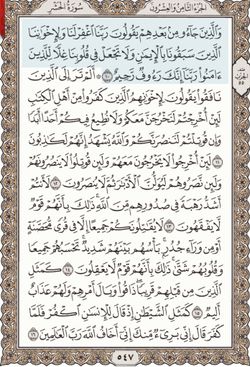 الجزء الثامن والعشرون سورة الحشر
وَالَّذِينَ جَاءُو مِنْ بَعْدِهِمْ يَقُولُونَ رَبَّنَا اغْفِرْ لَنَا وَلِإِخْوَانِنَا
الَّذِينَ سَبَقُونَا بِالْإِيمَانِ وَلَا تَجْعَلْ فِي قُلُوبِنَا غِلًّا لِلَّذِينَ
ءَامَنُوا رَبَّنَا إِنَّكَ رَءُوفٌ رَحِيمٌ ١٠ ۞ أَلَمْ تَرَ إِلَى الَّذِينَ
نَافَقُوا يَقُولُونَ لِإِخْوَانِهِمُ الَّذِينَ كَفَرُوا مِنْ أَهْلِ الْكِتَابِ
لَئِنْ أُخْرِجْتُمْ لَنَخْرُجَنَّ مَعَكُمْ وَلَا نُطِيعُ فِيكُمْ أَحَدًا أَبَدًا
وَإِنْ قُوتِلْتُمْ لَنَنْصُرَنَّكُمْ وَاللَّهُ يَشْهَدُ إِنَّهُمْ لَكَاذِبُونَ
١١ لَئِنْ أُخْرِجُوا لَا يَخْرُجُونَ مَعَهُمْ وَلَئِنْ قُوتِلُوا لَا يَنْصُرُونَهُمْ
وَلَئِنْ نَصَرُوهُمْ لَيُوَلُّنَّ الْأَدْبَارَ ثُمَّ لَا يُنْصَرُونَ ١٢ لَأَنْتُمْ
أَشَدُّ رَهْبَةً فِي صُدُورِهِمْ مِنَ اللَّهِ ذَلِكَ بِأَنَّهُمْ قَوْمٌ
لَا يَفْقَهُونَ ١٣ لَا يُقَاتِلُونَكُمْ جَمِيعًا إِلَّا فِي قُرًى مُحَصَّنَةٍ
أَوْ مِنْ وَرَاءِ جُدُرٍ بَأْسُهُمْ بَيْنَهُمْ شَدِيدٌ تَحْسَبُهُمْ جَمِيعًا
وَقُلُوبُهُمْ شَتَّى ذَلِكَ بِأَنَّهُمْ قَوْمٌ لَا يَعْقِلُونَ ١٤ كَمَثَلِ
الَّذِينَ مِنْ قَبْلِهِمْ قَرِيبًا ذَاقُوا وَبَالَ أَمْرِهِمْ وَلَهُمْ عَذَابٌ
أَلِيمٌ ١٥ كَمَثَلِ الشَّيْطَانِ إِذْ قَالَ لِلْإِنْسَانِ اكْفُرْ فَلَمَّا
كَفَرَ قَالَ إِنِّي بَرِيءٌ مِنْكَ إِنِّي أَخَافُ اللَّهَ رَبَّ الْعَالَمِينَ ١٦
٥٤٧